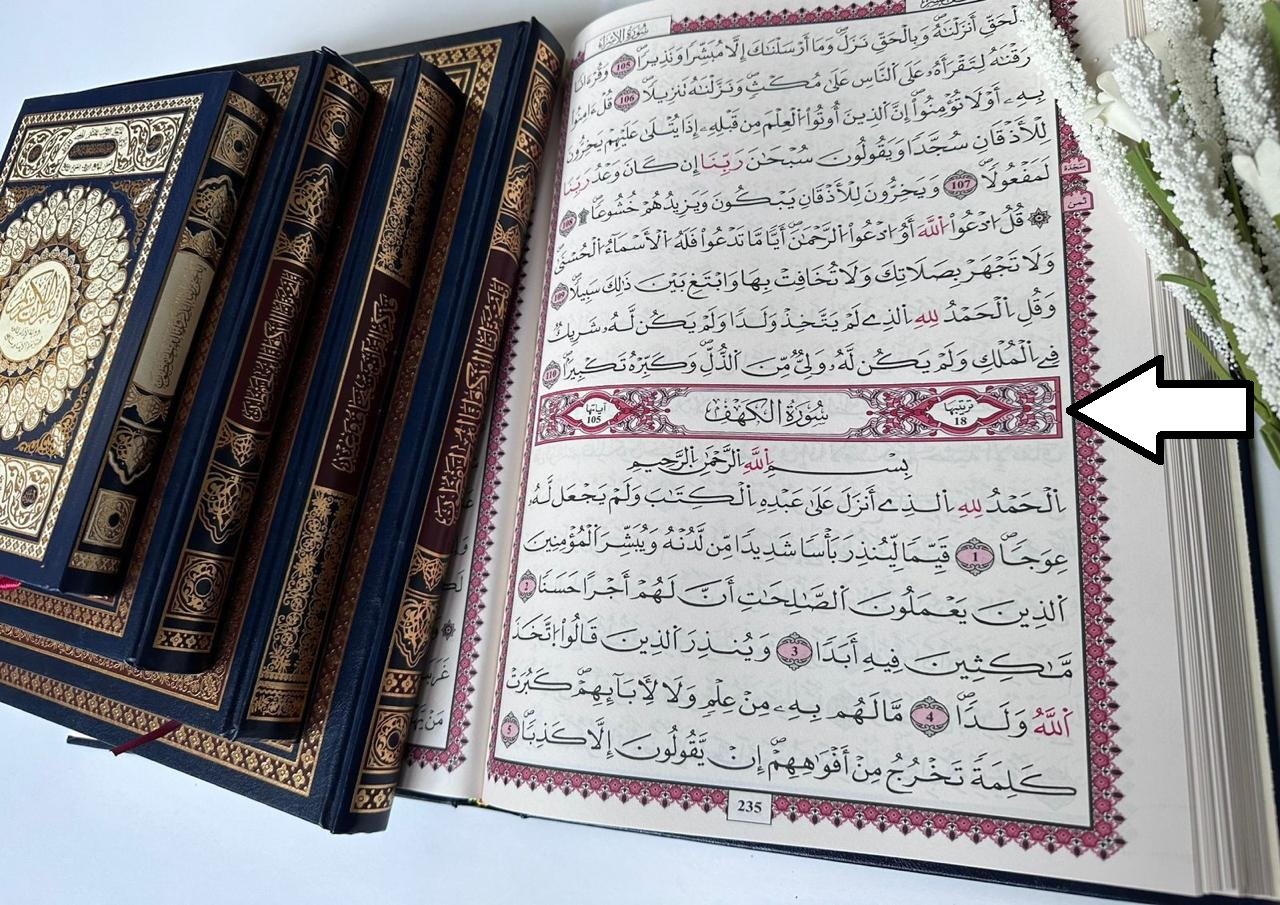 سُورَةُ الْإِسْرَاءِ
لْحَقِّ أَنزَلْنَٰهُ وَبِالْحَقِّ نَزَلَ وَمَا أَرْسَلْنَٰكَ إِلَّا مُبَشِّرًا وَنَذِيرًا 105 وَقُرْءَانًا
رَقْنَٰهُ لِتَقْرَأَهُۥ عَلَى النَّاسِ عَلَىٰ مُكْثٍ وَنَزَّلْنَٰهُ تَنزِيلًا 106 قُلْ ءَامِنُوا
بِهِۦ أَوْ لَا تُؤْمِنُوا إِنَّ الذِينَ أُوتُوا الْعِلْمَ مِن قَبْلِهِۦ إِذَا يُتْلَىٰ عَلَيْهِمْ يَخِرُّونَ
لِلْأَذْقَانِ سُجَّدًا وَيَقُولُونَ سُبْحَٰنَ رَبِّنَا إِن كَانَ وَعْدُ رَبِّنَا
لَمَفْعُولًا 107 وَيَخِرُّونَ لِلْأَذْقَانِ يَبْكُونَ وَيَزِيدُهُمْ خُشُوعًا ۩ 108
سَجْدَة
ثُمن
۞ قُلُ ادْعُوا اللَّهَ أَوُ ادْعُوا الرَّحْمَٰنَ أَيًّا مَّا تَدْعُوا فَلَهُ الْأَسْمَاءُ الْحُسْنَىٰ
وَلَا تَجْهَرْ بِصَلَاتِكَ وَلَا تُخَافِتْ بِهَا وَابْتَغِ بَيْنَ ذَٰلِكَ سَبِيلًا 109
وَقُلِ الْحَمْدُ لِلهِ الذِے لَمْ يَتَّخِذْ وَلَدًا وَلَمْ يَكُن لَّهُۥ شَرِيكٌ
فِے الْمُلْكِ وَلَمْ يَكُن لَّهُۥ وَلِيٌّ مِّنَ الذُّلِّ وَكَبِّرْهُ تَكْبِيرًا 110
تَرْتِيبُهَا 18 سُورَةُ الْكَهْفِ آيَاتُهَا 105
بِسْمِ اللَّهِ الرَّحْمَٰنِ الرَّحِيمِ
الْحَمْدُ لِلهِ الذِے أَنزَلَ عَلَىٰ عَبْدِهِ الْكِتَٰبَ وَلَمْ يَجْعَل لَّهُۥ
عِوَجًا 1 قَيِّمًا لِّيُنذِرَ بَأْسًا شَدِيدًا مِّن لَّدُنْهُ وَيُبَشِّرَ الْمُؤْمِنِينَ
الذِينَ يَعْمَلُونَ الصَّٰلِحَٰتِ أَنَّ لَهُمْ أَجْرًا حَسَنًا 2
مَّٰكِثِينَ فِيهِ أَبَدًا 3 وَيُنذِرَ الذِينَ قَالُوا اتَّخَذَ
اللَّهُ وَلَدًا 4 مَّا لَهُم بِهِۦ مِنْ عِلْمٍ وَلَا لِأَبَآئِهِمْ كَبُرَتْ
كَلِمَةً تَخْرُجُ مِنْ أَفْوَٰهِهِمْ إِن يَّقُولُونَ إِلَّا كَذِبًا 5
235